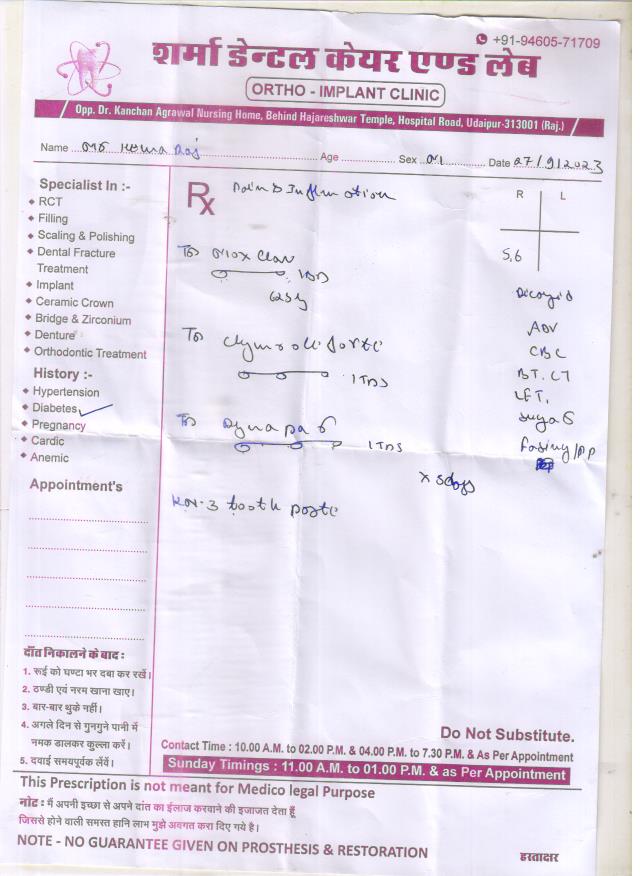 +91-94605-71709
शर्मा डेन्टल केयर एण्ड लेब
ORTHO - IMPLANT CLINIC
Opp. Dr. Kanchan Agrawal Nursing Home, Behind Hajareshwar Temple, Hospital Road, Udaipur-313001 (Raj.)
Name Age Sex M Date 27/9/2023
Specialist In :-
RCT
Filling
Scaling & Polishing
Dental Fracture
Treatment
Implant
Ceramic Crown
Bridge & Zirconium
Denture
Orthodontic Treatment
History :-
Hypertension
Diabetes
Pregnancy
Cardic
Anemic
Appointment's
Rx
R L
5,6
Adv
CBC
BT. CT
LFT.
Mox Clav
1 BD
forte
1 TDS
1 TDS
x 5 days
tooth paste
दाँत निकालने के बाद :
1. रूई को घण्टा भर दबा कर रखें।
2. ठण्डी एवं नरम खाना खाए।
3. बार-बार थुके नहीं।
4. अगले दिन से गुनगुने पानी में
नमक डालकर कुल्ला करें।
5. दवाई समयपूर्वक लेंवें।
Do Not Substitute.
Contact Time : 10.00 A.M. to 02.00 P.M. & 04.00 P.M. to 7.30 P.M. & As Per Appointment
Sunday Timings : 11.00 A.M. to 01.00 P.M. & as Per Appointment
This Prescription is not meant for Medico legal Purpose
नोट : मैं अपनी इच्छा से अपने दांत का ईलाज करवाने की इजाजत देता हूँ
जिससे होने वाली समस्त हानि लाभ मुझे अवगत करा दिए गये है।
NOTE - NO GUARANTEE GIVEN ON PROSTHESIS & RESTORATION
हस्ताक्षर